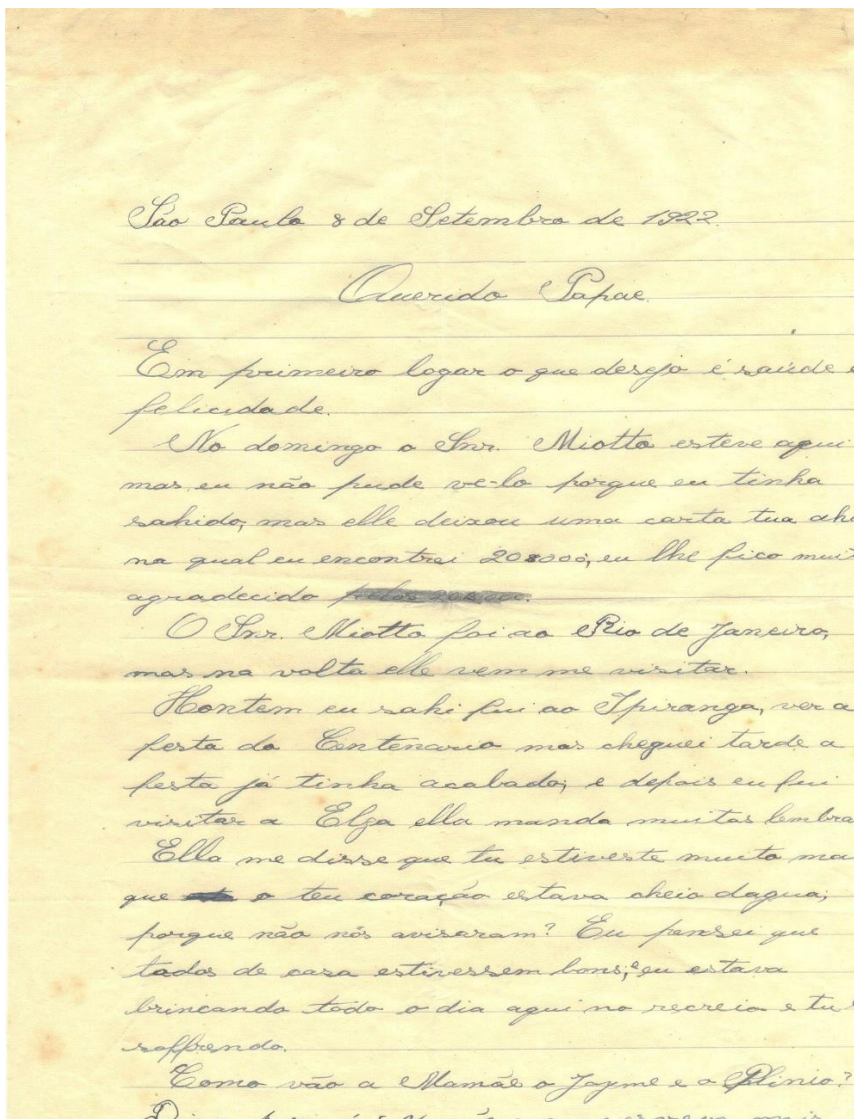 São Paulo 8 de Setembro de 1922.
Querido Papae.
Em primeiro logar o que desejo é saúde e
felicidade.
No domingo o Snr. Miotto esteve aqui
mas eu não pude ve-lo porque eu tinha
sahido, mas elle deixou uma carta tua ahi
na qual eu encontrei 20$000; eu lhe fico muit
agradecido
O Snr. Miotto foi ao Rio de Janeiro,
mas na volta elle vem me visitar.
Hontem eu sahi fui ao Ipiranga, ver a
festa do Centenario mas cheguei tarde a
festa já tinha acabado; e depois eu fui
visitar a Elza ella manda muitas lembra
Ella me disse que tu estiveste muito ma
que o teu coração estava cheio dagua;
porque não nós avisaram? Eu pensei que
todos de casa estivessem bons; e eu estava
brincando todo o dia aqui no recreio e tu
soffrendo.
Como vão a Mamãe o Jayme e o Plinio?